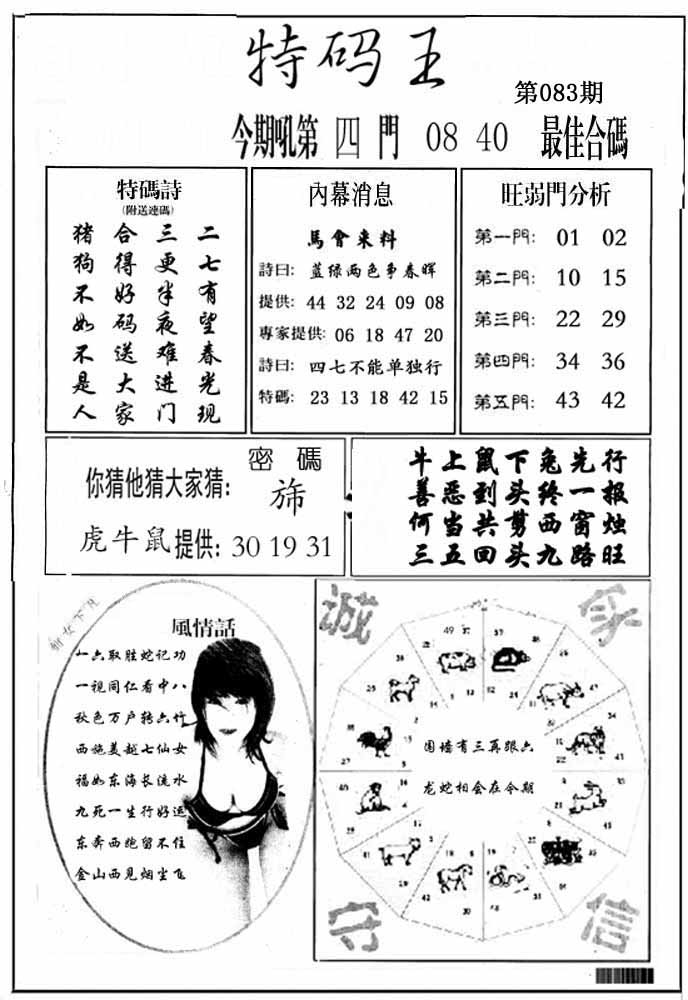 特码王
第083期
今期吼第 四 門 08 40 最佳合碼
特碼詩
(附送连碼)
二七有望春光现
三更半夜难进门
合得好码送大家
猪狗不如不是人
內幕消息
馬會来料
詩曰: 蓝绿两色争春晖
提供: 44 32 24 09 08
專家提供: 06 18 47 20
詩曰: 四七不能单独行
特碼: 23 13 18 42 15
旺弱門分析
第一門: 01 02
第二門: 10 15
第三門: 22 29
第四門: 34 36
第五門: 43 42
密碼
你猜他猜大家猜:
虎牛鼠提供: 30 19 31
牛上鼠下兔先行
善恶到头终一报
何当共剪西窗烛
三五回头九路旺
風情話
一六取胜蛇记功
一视同仁看中八
秋色万户转六竹
西施美越七仙女
福如东海长流水
九死一生行好运
东奔西跑留不住
金山西见烟尘飞
诚
守
信
围墙有三再跟六
龙蛇相会在今期